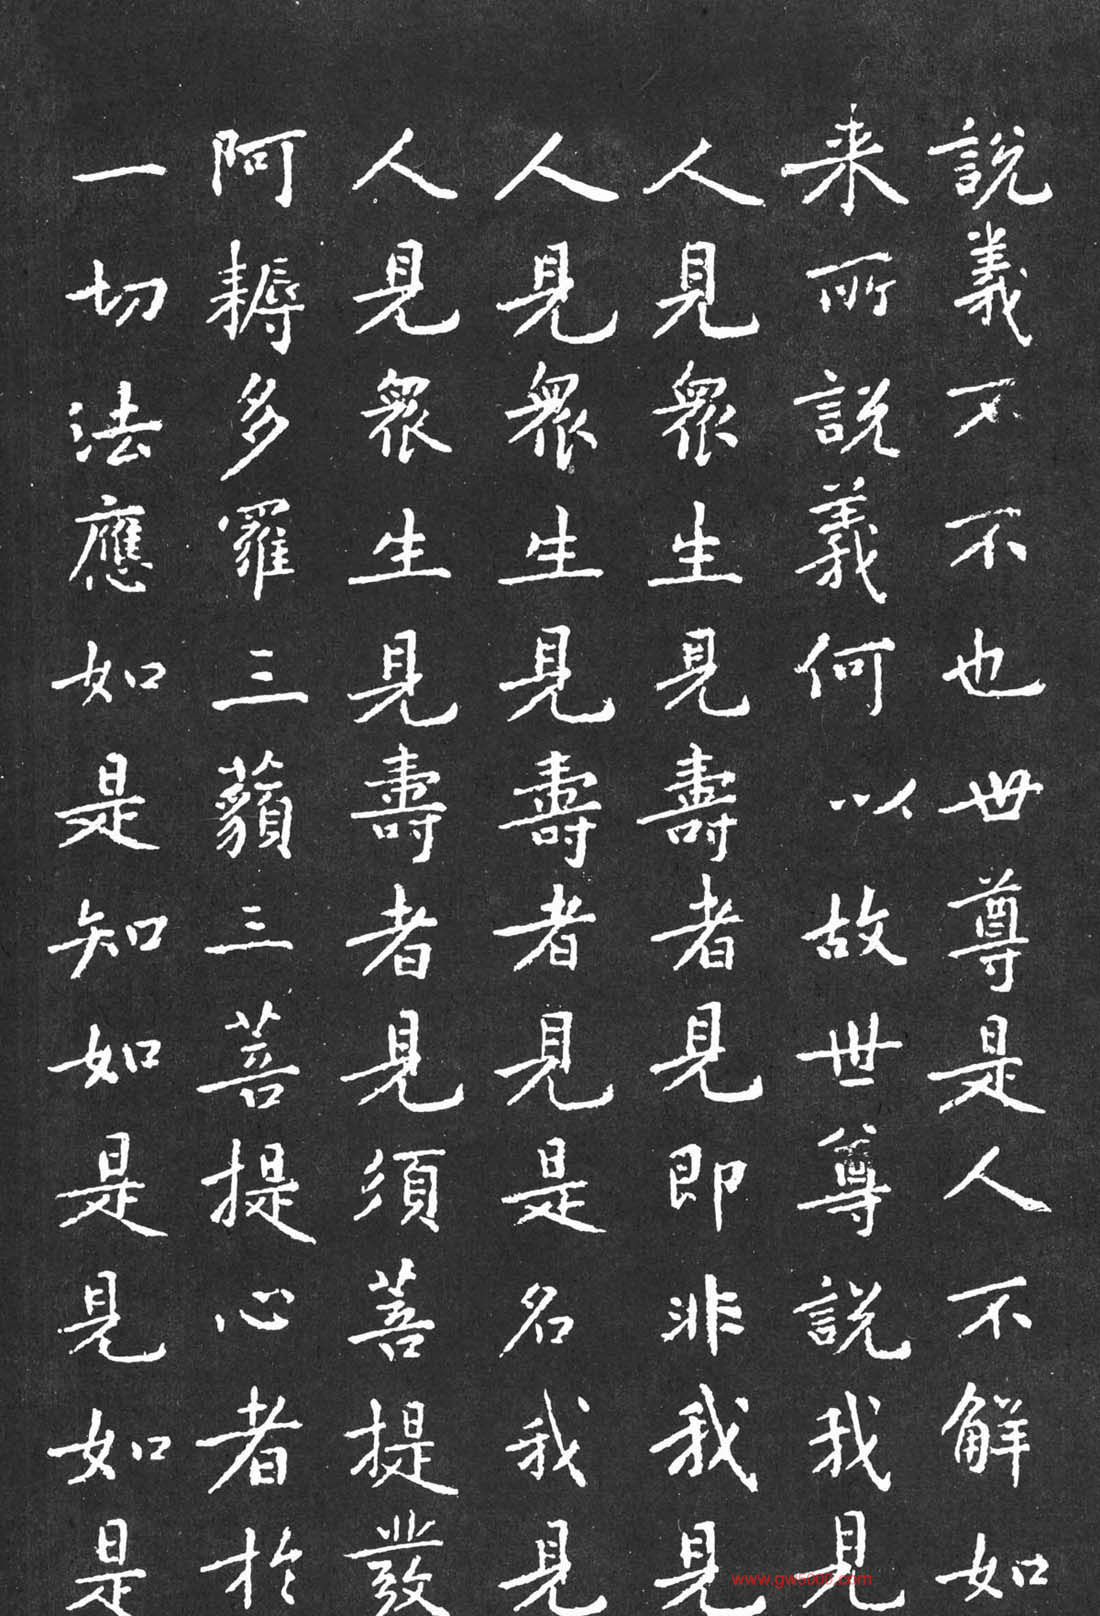 說義不不也世尊是人不解如
来所說義何以故世尊說我見
人見眾生見壽者見即非我見
人見眾生見壽者見是名我見
人見眾生見壽者見須菩提發
阿耨多羅三藐三菩提心者於
一切法應如是知如是見如是
www.gw5000.com